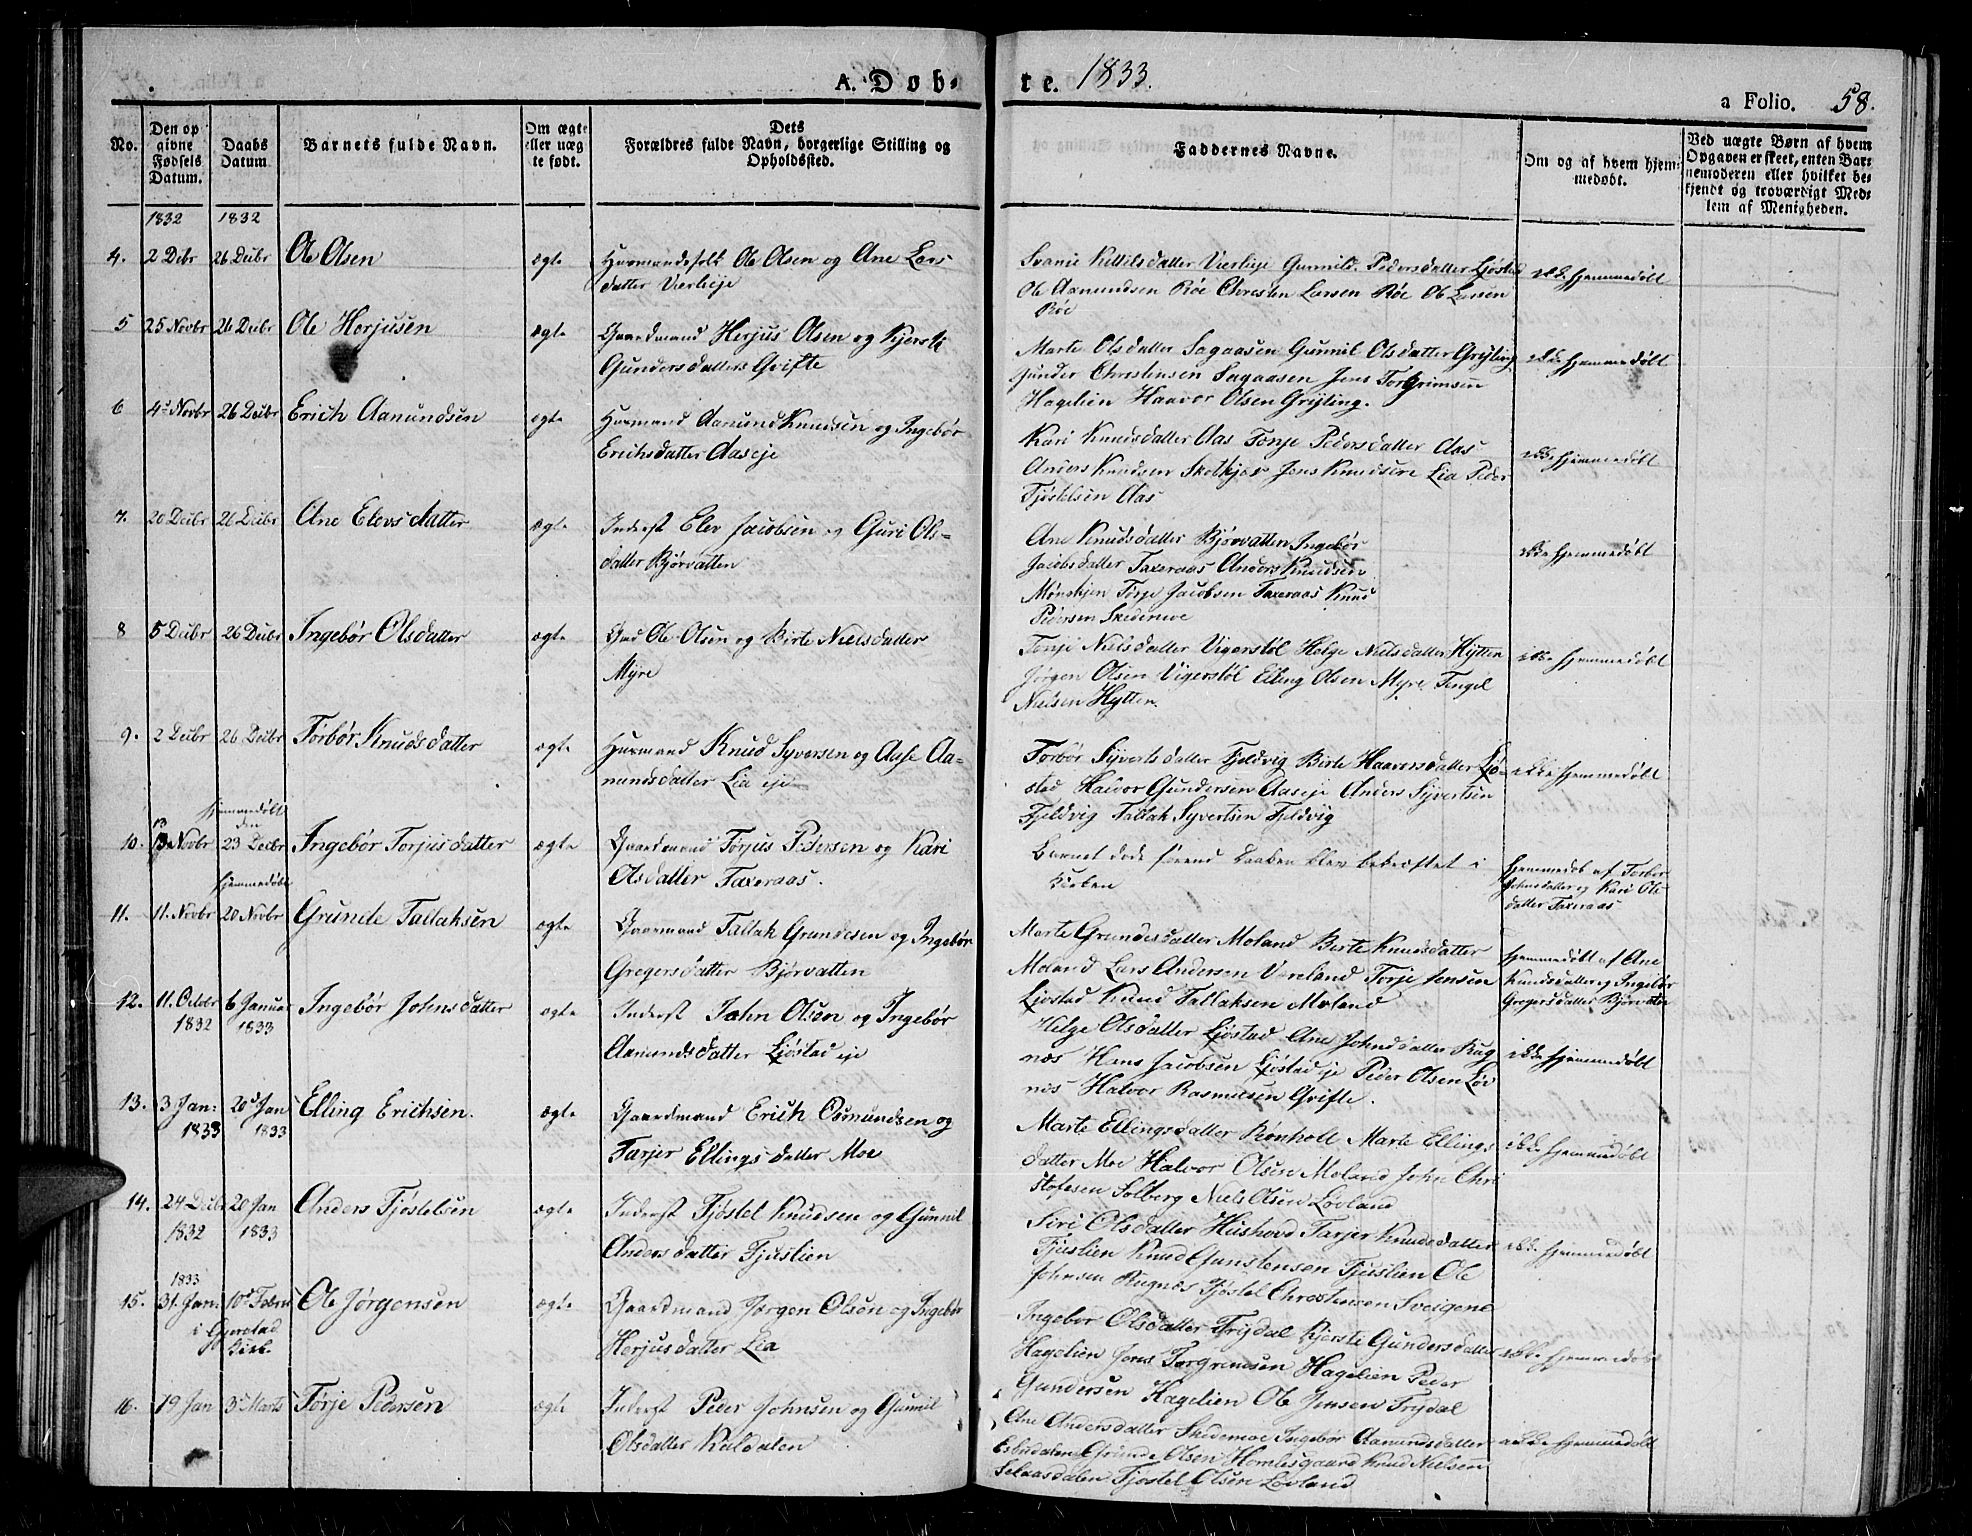 A. Døb-
te. 1833.
a Folio. 58.
No.
Den op
givne
Fødsels
Datum.
Daabs
Datum
Barnets fulde Navn.
Om ægte
eller uæg
te født.
Dets
Forældres fulde Navn, borgerlige Stilling og
Opholdssted.
Faddernes Navne.
Om og af hvem hjem-
medøbt.
Ved uægte Børn af hvem
Opgaven er skeet, enten Bar-
nemoderen eller hvilket be-
kjendt og troværdigt Med-
lem af Menigheden.
1832 1832
4. 2 Debr 26 Deibr Ole Olsen ægte Huusmandsfolk Ole Olsen og Ane Lars-
datter Vierlieje
Kittilsdatter Vierlieje Gunnild Pedersdatter Ljøstad
Ole Aamundsen Røe Christen Larsen Røe Ole Larsen
Røe
ikke hjemmedøbt
5 25 Novbr 26 Deibr Ole Herjusen ægte Gaardmand Herjus Olsen og Kjersti
Gundersdatter Grifte
Marte Olsdatter Sagaasen Gunnil Olsdatter Grytting
Gunder Christensen Sagaasen Jens Torgrimsen
Hagelien Haavor Olsen Grytting.
ikke hjemmedøbt
6 4de Novbr 26 Deibr Erich Aamundsen ægte Huusmand Aamund Knudsen og Ingebør
Erichsdatter Aaseje
Kari Knudsdatter Aas Tonje Pedersdatter Aas
Anders Knudsen Skotkjær Jens Knudsen Lia Peder
Tjøstelsen Aas
ikke hjemmedøbt
7. 20 Deibr 26 Deibr Ane Elevsdatter ægte Inderst Elev Jacobsen og Guri Ols-
datter Bjørvatten
Ane Knudsdatter Bjørvatten Ingebør
Jacobsdatter Taxeraas Anders Knudsen
Torje Jacobsen Taxeraas Knud
Pedersen Skedemoe
ikke hjemmedøbt
8 5 Deibr 26 Deibr Ingebør Olsdatter ægte Ole Olsen og Birte Nielsdatter
Myre
Tonje Nielsdatter Vigerstøl Helge Nielsdatter Hytten
Jørgen Olsen Vigerstøl Elling Olsen Myre Tengel
Nielsen Hytten.
ikke hjemmedøbt
9. 2 Deibr 26 Deibr Torbør Knudsdatter ægte Huusmand Knud Syversen og Aase Aa-
mundsdatter Lia eje
Torbør Syvertsdatter Fjeldvig Birte Haavorsdatter Ljø-
stad Halvor Gundersen Aaseje Anders Syvertsen
Fjeldvig Tallak Syvertsen Fjeldvig
ikke hjemmedøbt
hjemmedøbt
den
10. 13 Novbr 23 Deibr Ingebør Torjusdatter ægte Gaardmand Torjus Pedersen og Kari
Olsdatter Taxeraas.
Barnet døde førend Daaben blev bekræftet i
Kirken
hjemmedøb af Torbor
Johnsdatter og Kari Ols-
datter Taxeraas
hjemmedøbt
11. 11. Novbr 20 Novbr Grunde Tallaksen ægte Gaarmand Tallak Grundesen og Ingebør
Gregersdatter Bjørvatten
Marte Grundesdatter Moland Birte Knudsdatter
Moland Lars Andersen Voreland Torje Jensen
Ljøstad Knud Tallaksen Moland
hjemmedøbt af Ane
Knudsdatter og Ingebør
Gregersdatter Bjørvatn
12. 11. Octbr 6 Januar Ingebør Johnsdatter ægte Inderst John Olsen og Ingebør
1832 1833
Aamundsdatter Ljøstad eje
Helge Olsdatter Ljøstad Ane Johnsdatter Rug
næs Hans Jacobsen Ljøstad eje Peder Olsen Løv
næs Halvor Rasmusen Grifte.
ikke hjemmedøbt
13. 3 Jan: 20de Jan Elling Erichsen. ægte Gaardmand Erich Osmundsen og
1833 1833
Tarjer Ellingsdatter Moe
Marte Ellingsdatter Rønholt Marte Ellings
datter Moe Halvor Olsen Moland John Chri
stofesen Solberg Niels Olsen Løvland
ikke hjemmedøbt
14. 24 Deibr 20 Jan Anders Tjøstelsen ægte Inderst Tjøstel Knudsen og Gunnil
1832 1833
Andersdatter Tjuslien
Siri Olsdatter Hushovd Tarjer Knudsdatter
Tjuslien Knud Gunstensen Tjuslien Ole
Johnsen Rugnæs Tjøstel Christensen Sveigene
ikke hjemmedøbt
1833
15. 31. Jan: 10de Febru Ole Jørgensen ægte Gaardmand Jørgen Olsen og Ingebør
i Gjerstad
Kirk.
Herjusdatter Lia
Ingebor Olsdatter Trydal Kjerste Gundersdatter
Hagelien Jens Torgrimsen Hagelien Peder
Gundersen Hagelien Ole Jensen Trydal
ikke hjemmedøbt
16. 19 Jan 3de Marts Torje Pedersen ægte Inderst Peder Johnsen og Gunnil
Olsdatter Kaldalen
Ane Andersdatter Skedemoe Ingebør Aamundsdatter
Esbudalen Grunde Olsen Homlesgaard Knud Nielsen
Selaasdalen Tjøstel Olsen Løvland
ikke hjemmedøbt